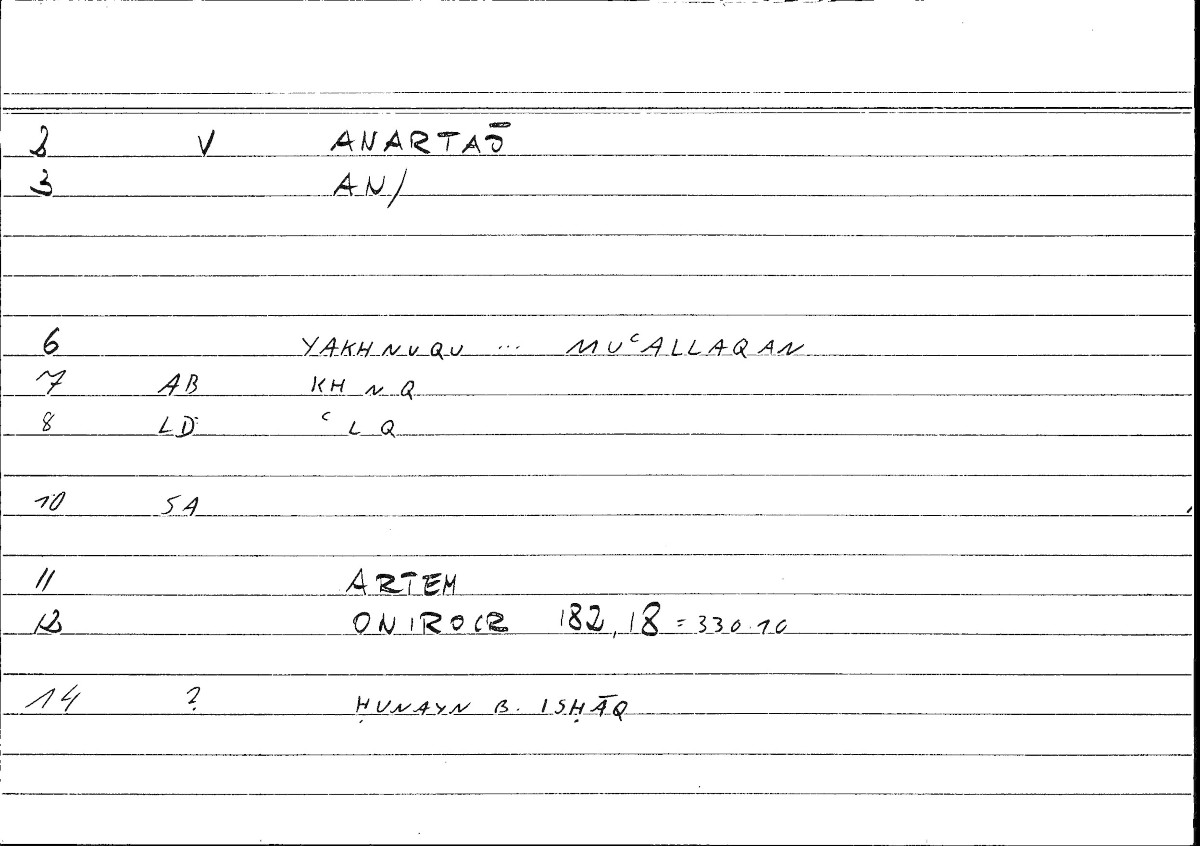 2 V ANARTAŌ
3 AN/
6 YAKHNUQU ... MUᶜALLAQAN
7 AB KH N Q
8 LD ᶜ L Q
10 SA
11 ARTEM
12 ONIROCR 182,18 = 330.10
14 ? ḤUNAYN B. ISḤĀQ